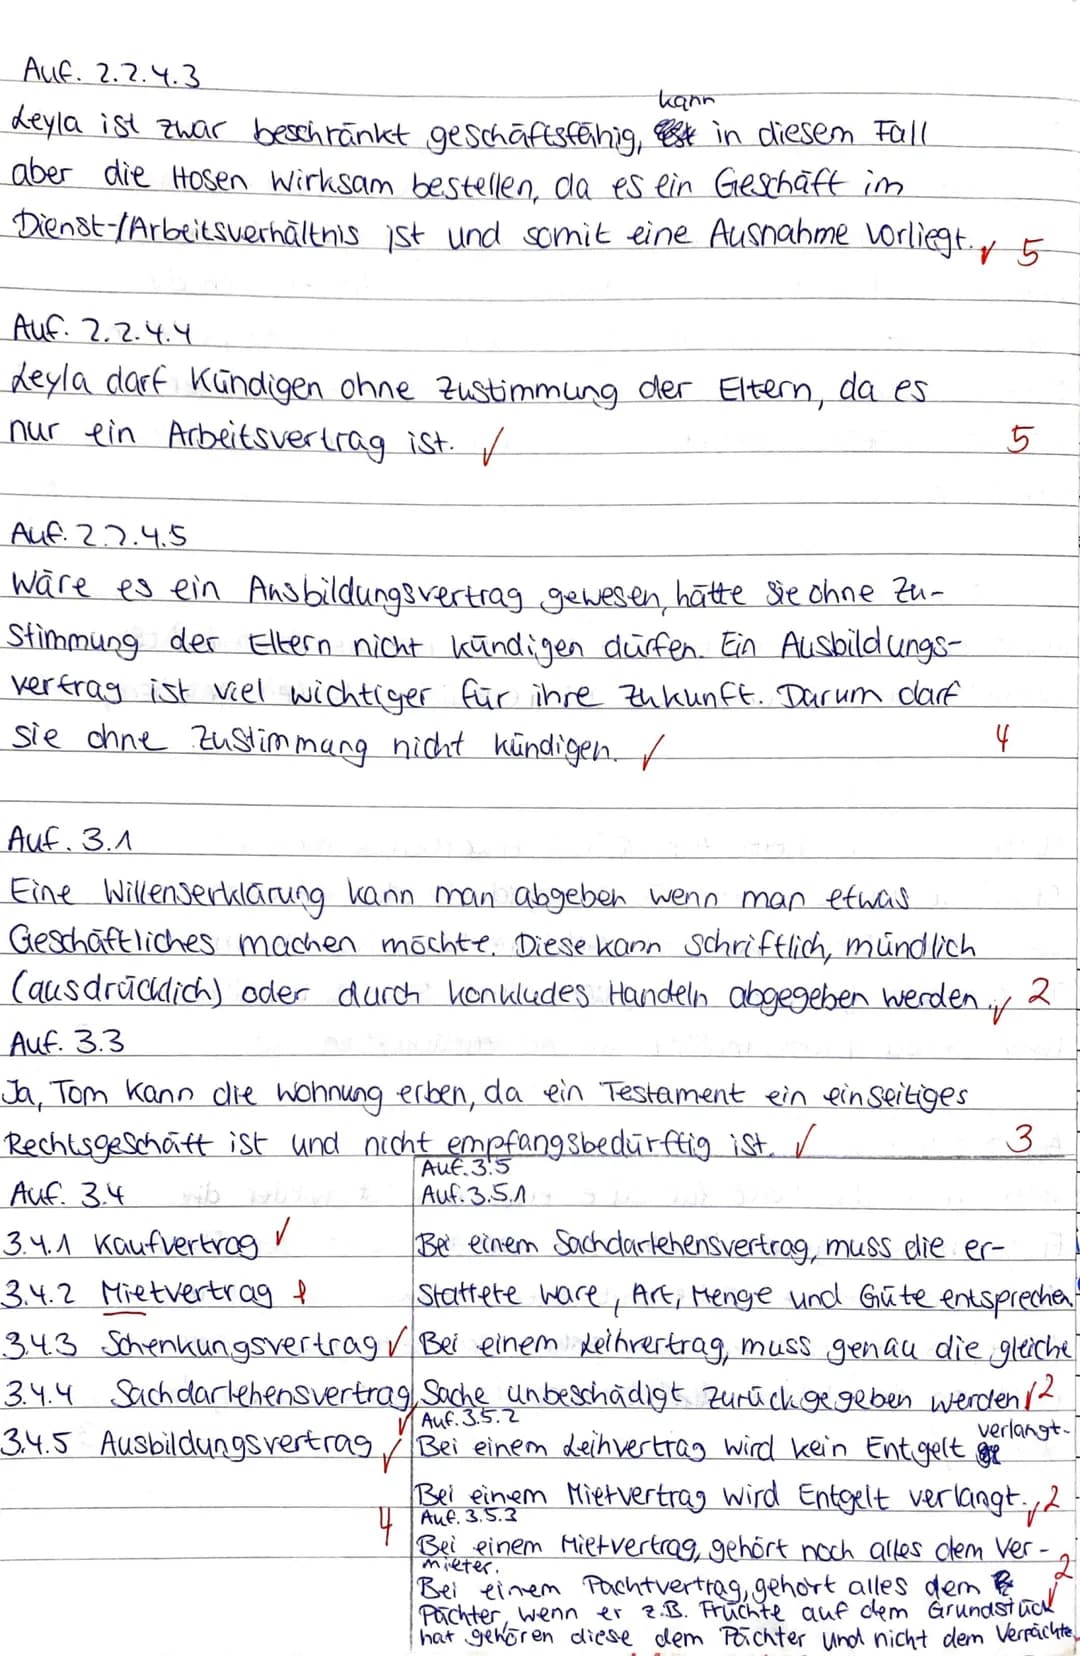 Auf. 2.2.4.3
kann
Leyla ist zwar beschränkt geschäftsfähig, in diesem Fall
aber die Hosen wirksam bestellen, da es ein Geschäft im
Dienst-/Arbeitsverhältnis ist und somit eine Ausnahme vorliegt. ✓ 5
Auf. 2.2.4.4
Leyla darf Kündigen ohne Zustimmung der Eltern, da es
nur ein Arbeitsvertrag ist. ✓ 5
Auf. 2.2.4.5
Wäre es ein Ausbildungsvertrag gewesen, hätte Sie ohne Zu-
stimmung der Eltern nicht kündigen dürfen. Ein Ausbildungs-
vertrag ist viel wichtiger für ihre Zukunft. Darum darf
sie ohne Zustimmung nicht kündigen. ✓ 4
Auf. 3.1
Eine Willenserklärung kann man abgeben wenn man etwas
Geschäftliches machen möchte. Diese kann schriftlich, mündlich
(ausdrücklich) oder durch konkludes Handeln abgegeben werden. ✓ 2
Auf. 3.3
Ja, Tom kann die Wohnung erben, da ein Testament ein einseitiges
Rechtsgeschäft ist und nicht empfangsbedürftig ist. ✓ 3
Auf. 3.4
3.4.1 Kaufvertrag ✓
3.4.2 Mietvertrag f
3.4.3 Schenkungsvertrag ✓
3.4.4 Sachdarlehensvertrag ✓
3.4.5 Ausbildungsvertrag ✓
4
Auf. 3.5
Auf. 3.5.1
Bei einem Sachdarlehensvertrag, muss die er-
stattete Ware, Art, Menge und Güte entsprechen
Bei einem Leihvertrag, muss genau die gleiche
Sache unbeschädigt zurückgegeben werden ✓ 2
Auf. 3.5.2
Bei einem Leihvertrag wird kein Entgelt verlangt.
Bei einem Mietvertrag wird Entgelt verlangt. ✓ 2
Auf. 3.5.3
Bei einem Mietvertrag, gehört noch alles dem Ver-
mieter.
Bei einem Pachtvertrag, gehört alles dem ✓ 2
Pächter, wenn er z.B. Früchte auf dem Grundstück
hat gehören diese dem Pächter und nicht dem Verpächter.